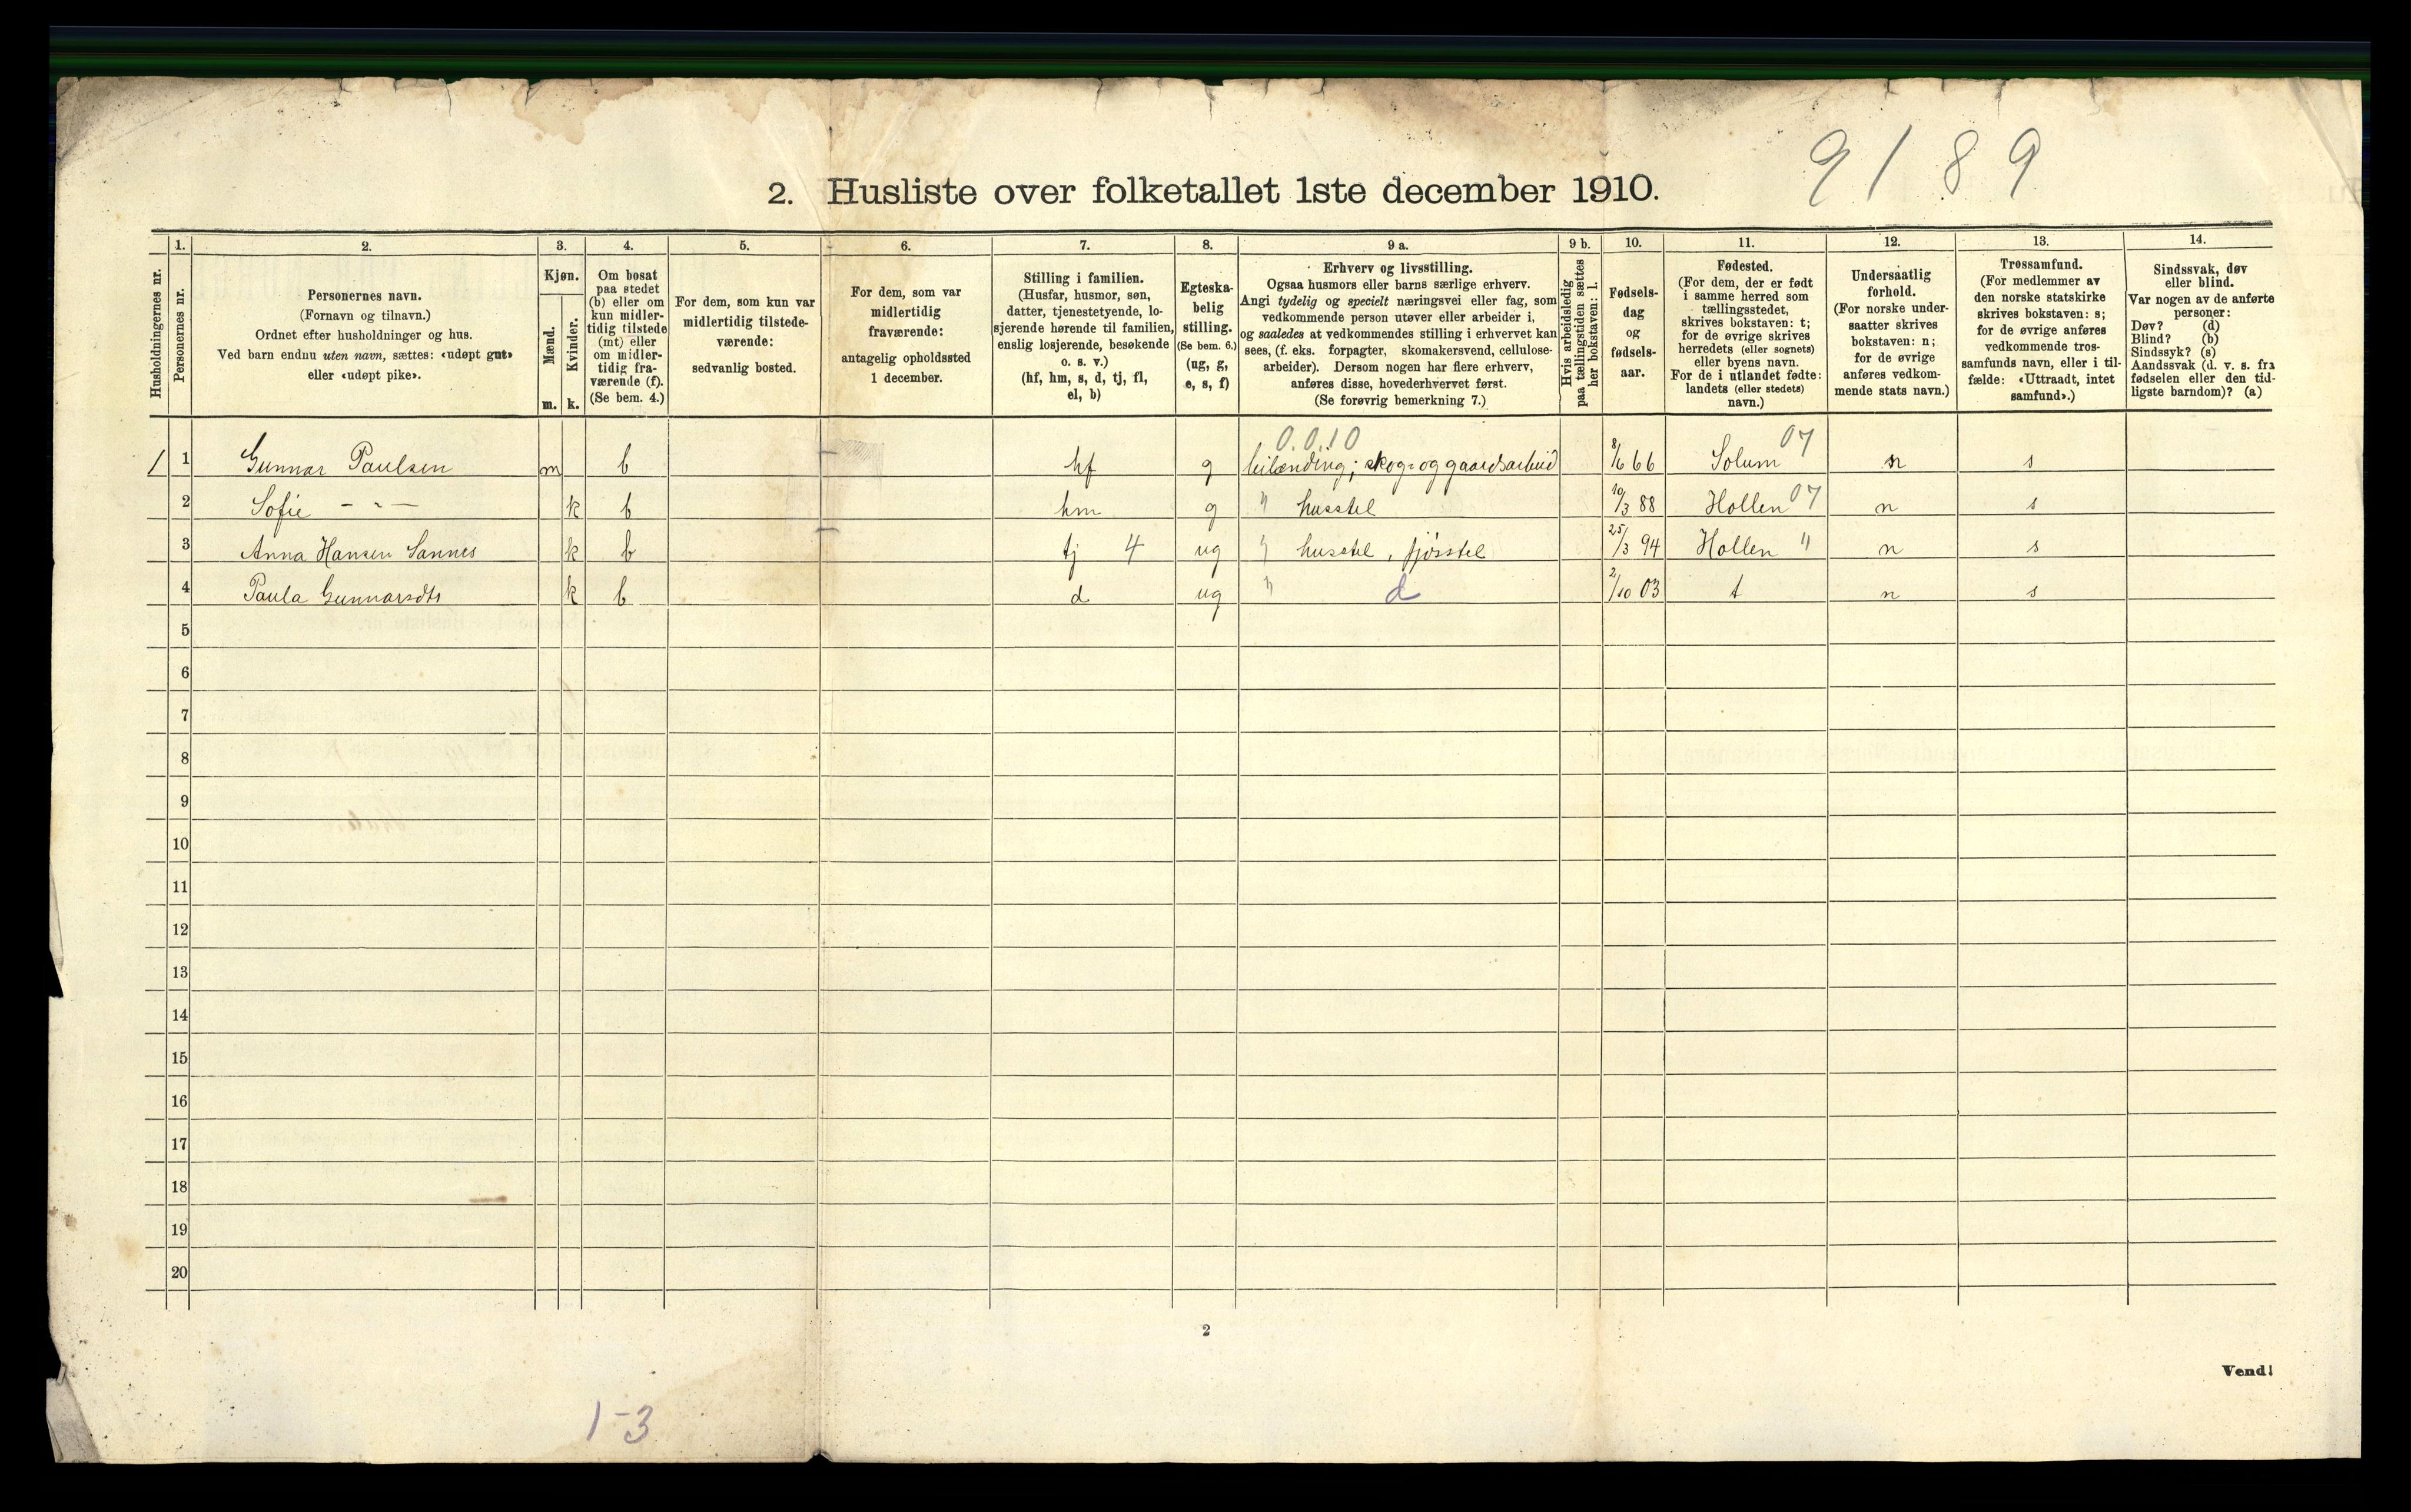 9 1 8 9
2. Husliste over folketallet 1ste december 1910.
Husholdningernes nr.
1.
Personernes nr.
2.
Personernes navn.
(Fornavn og tilnavn.)
Ordnet efter husholdninger og hus.
Ved barn endnu uten navn, sættes: «udøpt gut»
eller «udøpt pike».
3.
Kjøn.
Mænd.
m.
Kvinder.
k.
4.
Om bosat
paa stedet
(b) eller om
kun midler-
tidig tilstede
(mt) eller
om midler-
tidig fra-
værende (f).
(Se bem. 4.)
5.
For dem, som kun var
midlertidig tilstede-
værende:
sedvanlig bosted.
6.
For dem, som var
midlertidig
fraværende:
antagelig opholdssted
1 december.
7.
Stilling i familien.
(Husfar, husmor, søn,
datter, tjenestetyende, lo-
sjerende hørende til familien,
enslig losjerende, besøkende
o. s. v.)
(hf, hm, s, d, tj, fl,
el, b)
8.
Egteska-
belig
stilling.
(Se bem. 6.)
(ug, g,
e, s, f)
9 a.
Erhverv og livsstilling.
Ogsaa husmors eller barns særlige erhverv.
Angi tydelig og specielt næringsvei eller fag, som
vedkommende person utøver eller arbeider i,
og saaledes at vedkommendes stilling i erhvervet kan
sees, (f. eks. forpagter, skomakersvend, cellulose-
arbeider). Dersom nogen har flere erhverv,
anføres disse, hovederhvervet først.
(Se forøvrig bemerkning 7.)
9 b.
Hvis arbeidsledig
paa tællingstiden sættes
her bokstaven: l.
10.
Fødsels-
dag
og
fødsels-
aar.
11.
Fødested.
(For dem, der er født
i samme herred som
tællingsstedet,
skrives bokstaven: t;
for de øvrige skrives
herredets (eller sognets)
eller byens navn.
For de i utlandet fødte:
landets (eller stedets)
navn.)
12.
Undersaatlig
forhold.
(For norske under-
saatter skrives
bokstaven: n;
for de øvrige
anføres vedkom-
mende stats navn.)
13.
Trossamfund.
(For medlemmer av
den norske statskirke
skrives bokstaven: s;
for de øvrige anføres
vedkommende tros-
samfunds navn, eller i til-
fælde: «Uttraadt, intet
samfund».)
14.
Sindssvak, døv
eller blind.
Var nogen av de anførte
personer:
Døv? (d)
Blind? (b)
Sindssyk? (s)
Aandssvak (d. v. s. fra
fødselen eller den tid-
ligste barndom)? (a)
0.0.10 07
1 1 Gunnar Paulsen m b hf g leilænding; skog= og gaardsarbeid 8/6 66 Solum n s
2 Sofie - " - k b hm g " husstel 10/3 88 Hollen 07 n s
3 Anna Hansen Sannes k b tj 4 ug " husstel, fjøsstel 25/3 94 Hollen " n s
4 Paula Gunnarsdtr k b d ug " d 2/10 03 t n s
5
6
7
8
9
10
11
12
13
14
15
16
17
18
19
20
2
Vend!
1-3